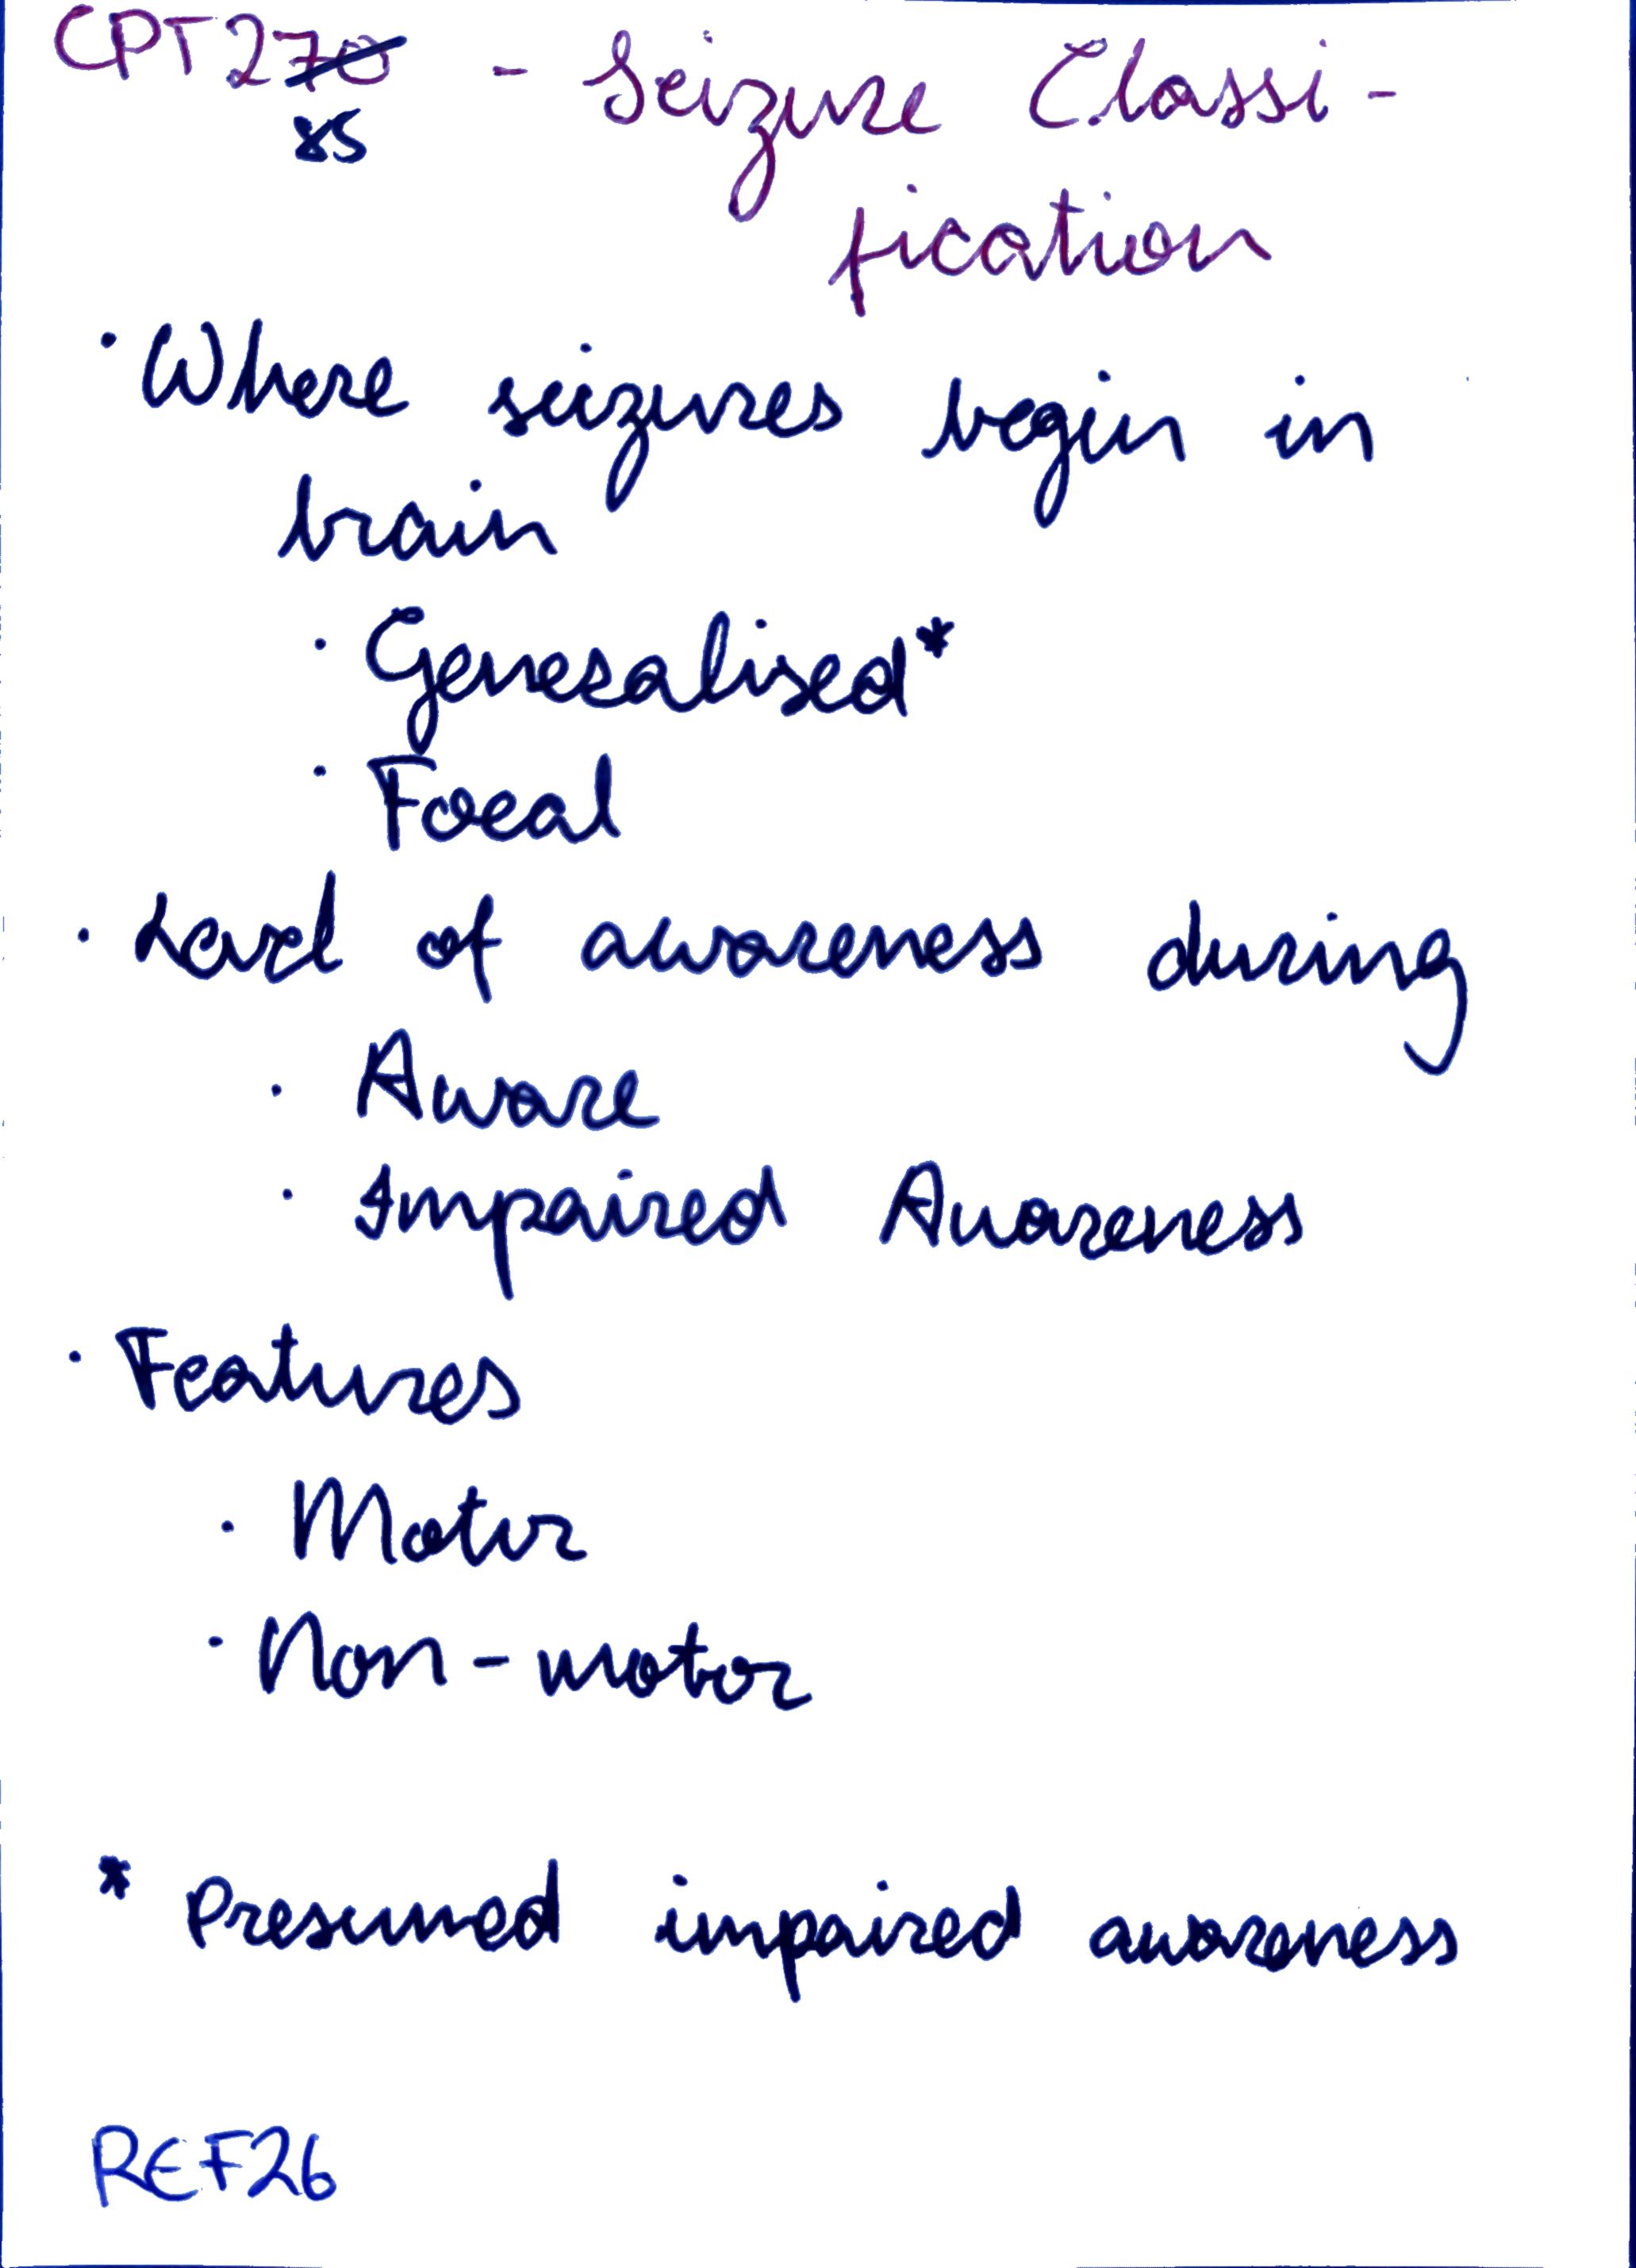 CPT270 - Seizure Classi-
85
fication
· Where seizures begin in
brain
· Generalised*
· Focal
· Level of awareness during
· Aware
· Impaired Awareness
· Features
· Motor
· Non-motor
* Presumed impaired awareness
REF26